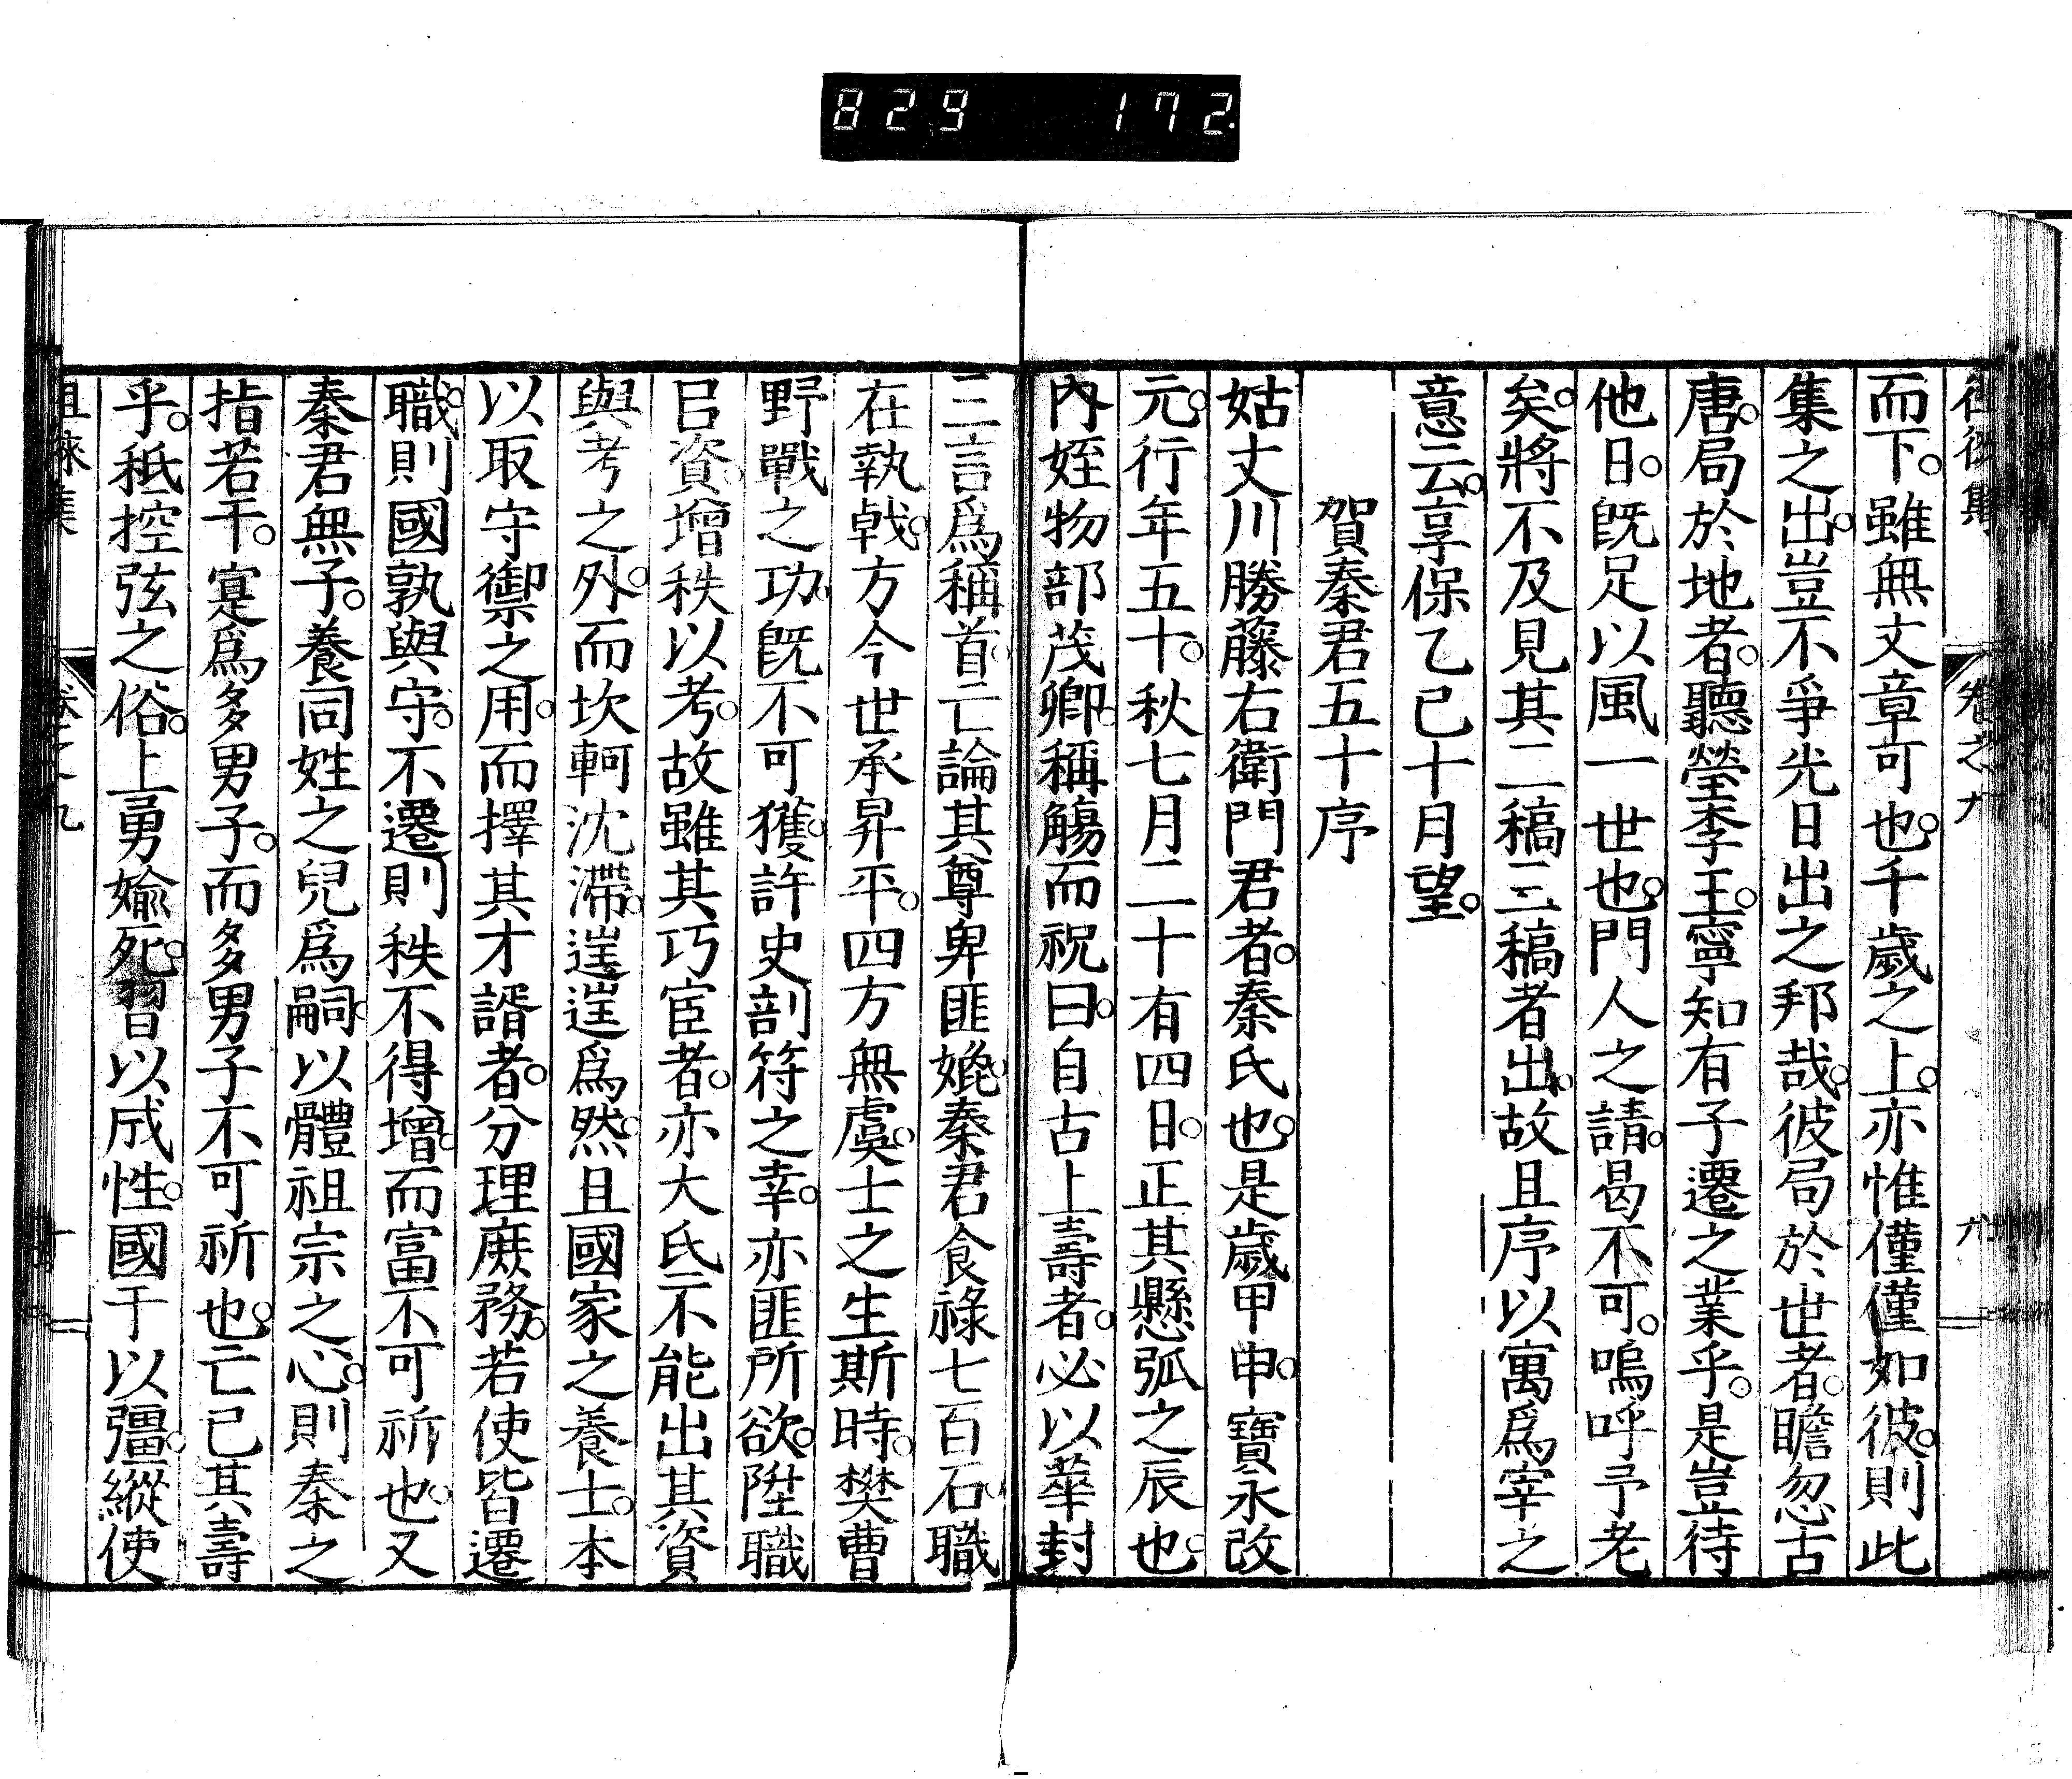 829 172
而下。雖無文章可也。千歲之上。亦惟僅僅如彼。則此
集之出。豈不爭光日出之邦哉。彼局於世者。瞻忽古
唐。局於地者。聽瑩李王。寧知有子遷之業乎。是豈待
他日。旣足以風一世也。門人之請。曷不可。嗚呼予老
矣。將不及見其二稿三稿者出。故且序以寓爲宰之
意云。享保乙巳十月望。
賀秦君五十序
姑丈川勝藤右衞門君者。秦氏也。是歲甲申。寶永改
元。行年五十。秋七月二十有四日。正其懸弧之辰也。
內姪物部茂卿。稱觴而祝曰。自古上壽者。必以華封
三言爲稱首。亡論其尊卑匪媲。秦君食祿七百石。職
在執戟。方今世承昇平。四方無虞。士之生斯時。樊曹
野戰之功。旣不可獲。許史剖符之幸。亦匪所欲。陞職
㠯資。增秩以考。故雖其巧宦者。亦大氐不能出其資
與考之外。而坎軻沈滯。逞逞爲然。且國家之養士。本
以取守禦之用。而擇其才諝者。分理庶務。若使皆遷
職。則國孰與守。不遷則秩不得增。而富不可祈也。又
秦君無子。養同姓之兒爲嗣。以體祖宗之心。則秦之
指若干。寔爲多男子。而多男子不可祈也。亡已其壽
乎。秪控弦之俗。上勇媮死。習以成性。國于以彊。縱使
徂徠集 卷之九